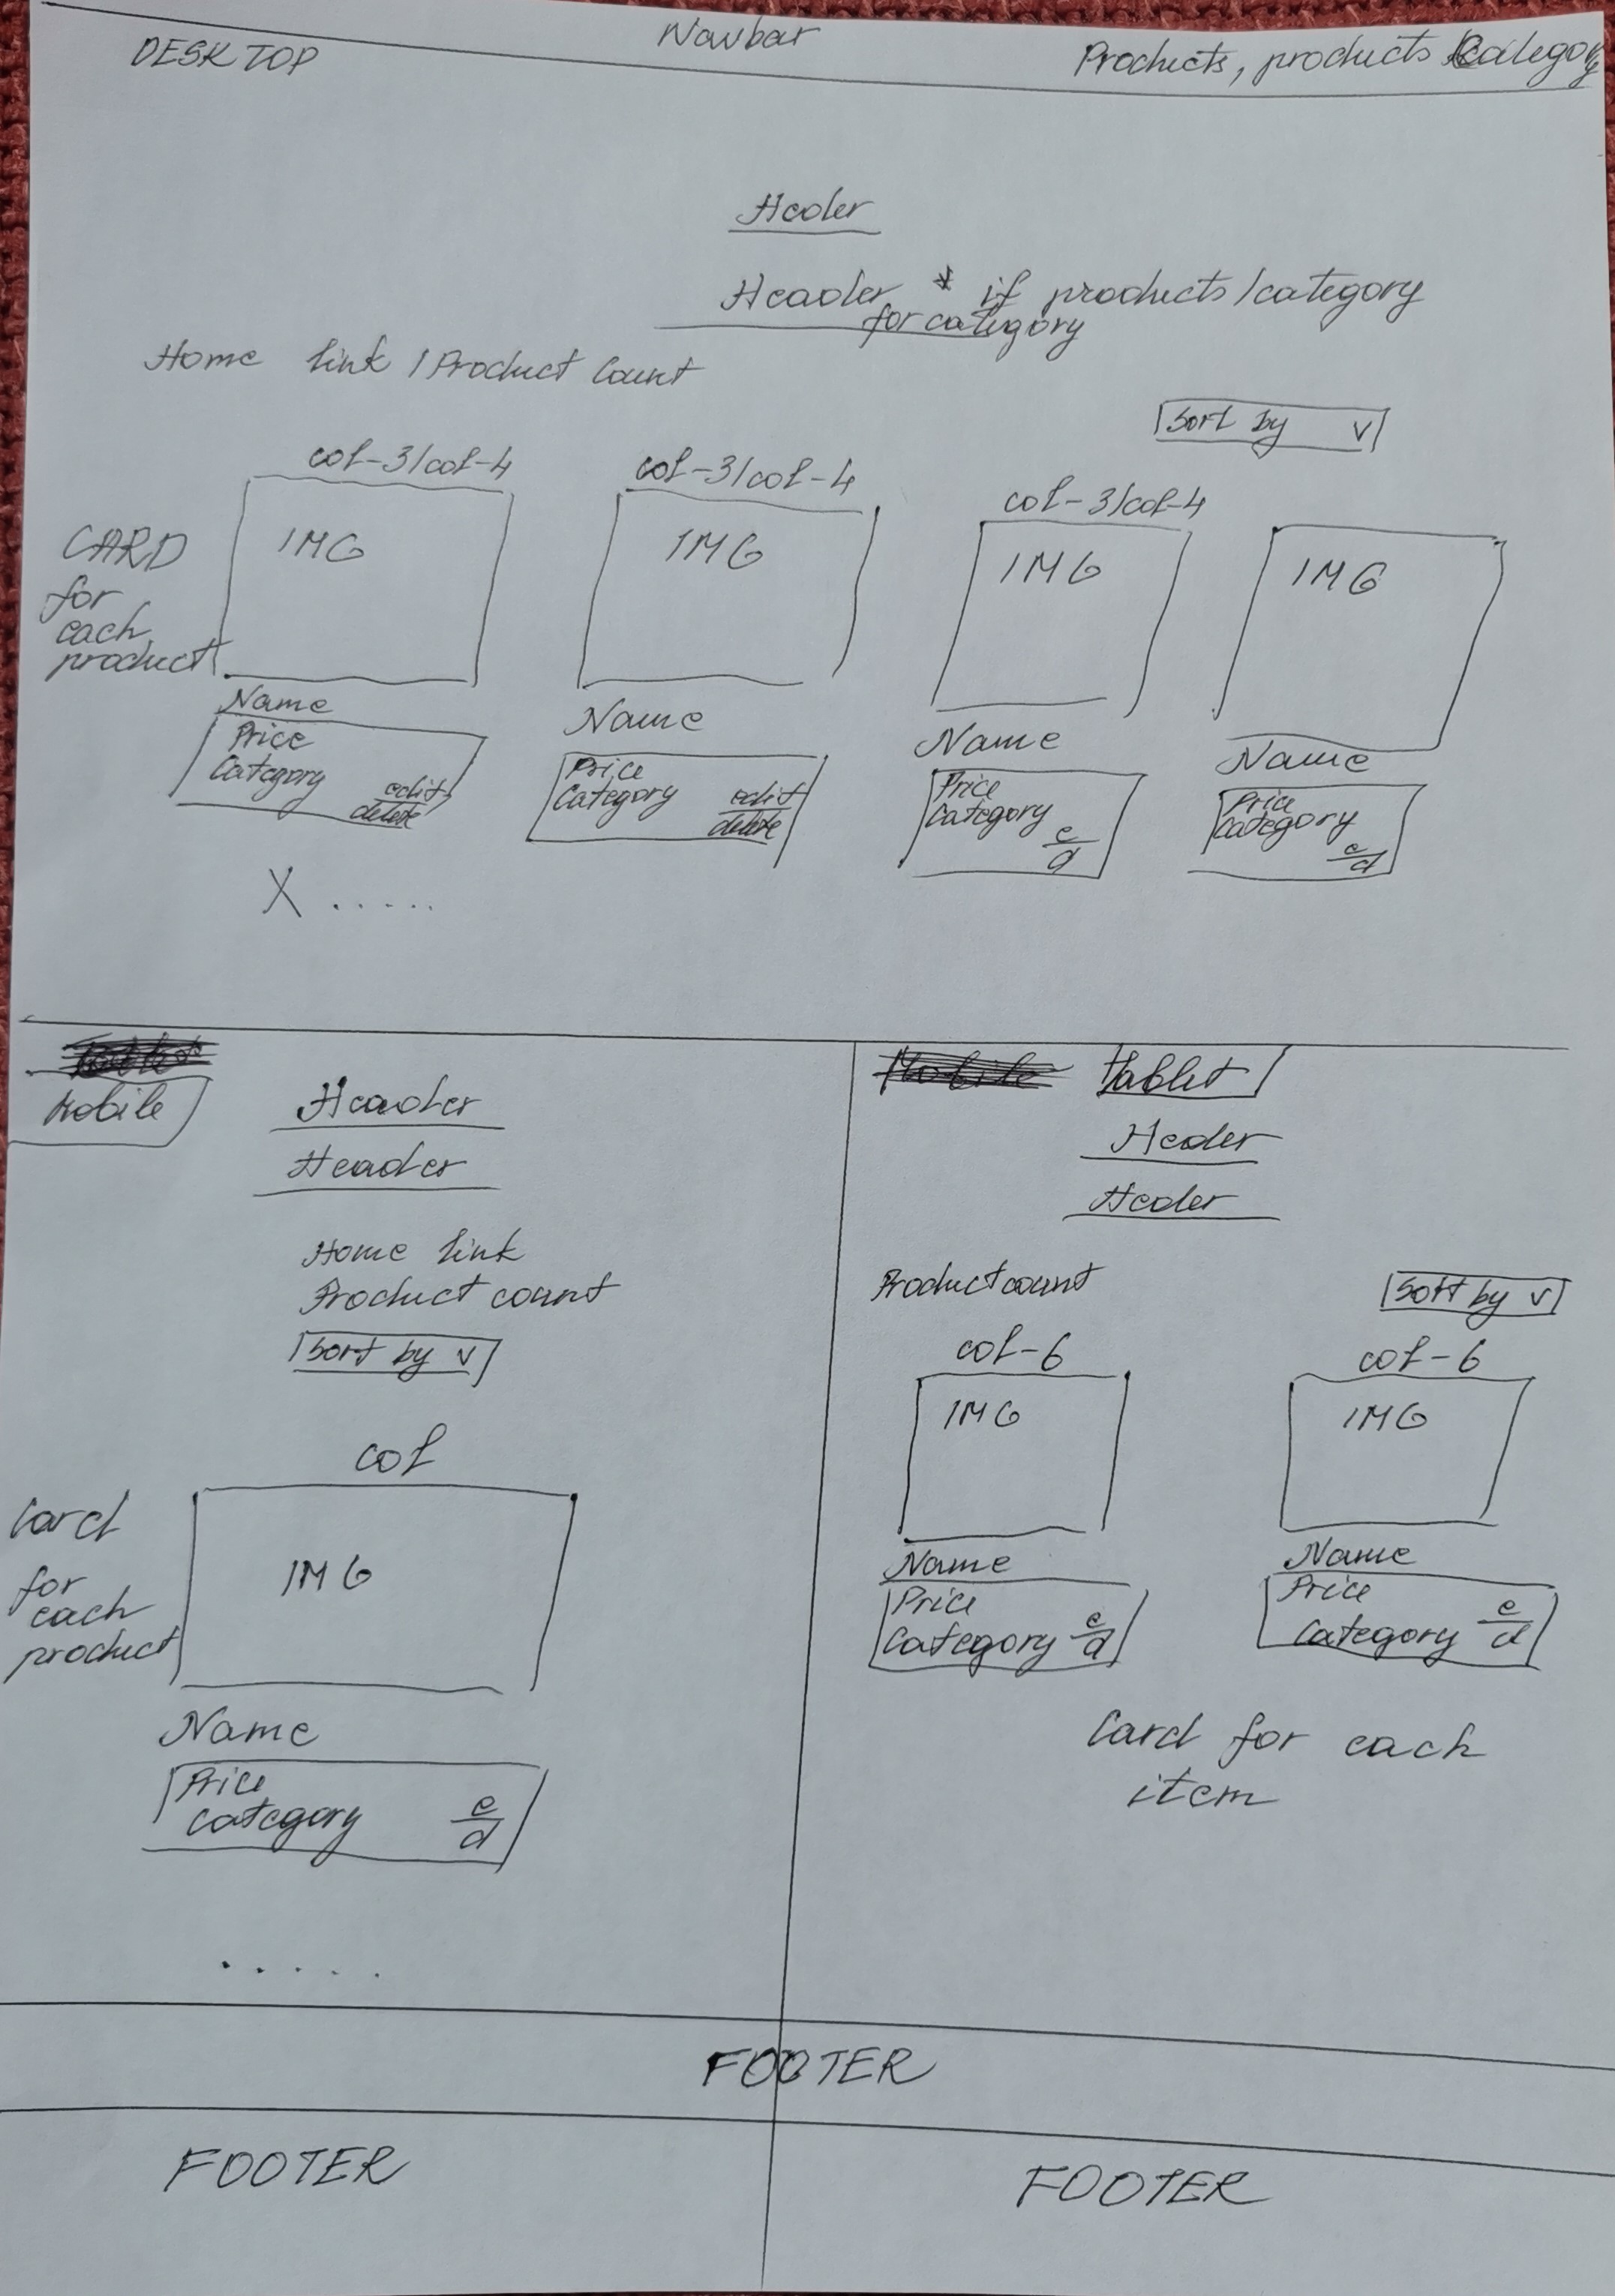 DESKTOP
Navbar
Products, products category
Heder
Header * if products/category
for category
Home link / Product Count
Sort by v
col-3/col-4
col-3/col-4
col-3/col-4
CARD
for
each
product
IMG
IMG
IMG
IMG
Name
Price
Category
edit
delete
Name
Price
Category
edit
delete
Name
Price
Category
e
d
Name
Price
Category
e
d
X .....
Mobile
Header
Header
Home link
Product count
Sort by v
col
Card
for
each
product
IMG
Name
Price
category
e
d
.....
Mobile Tablet
Heder
Heder
Product count
Sort by v
col-6
col-6
IMG
IMG
Name
Price
Category
e
d
Name
Price
Category
e
d
Card for each
item
FOOTER
FOOTER
FOOTER